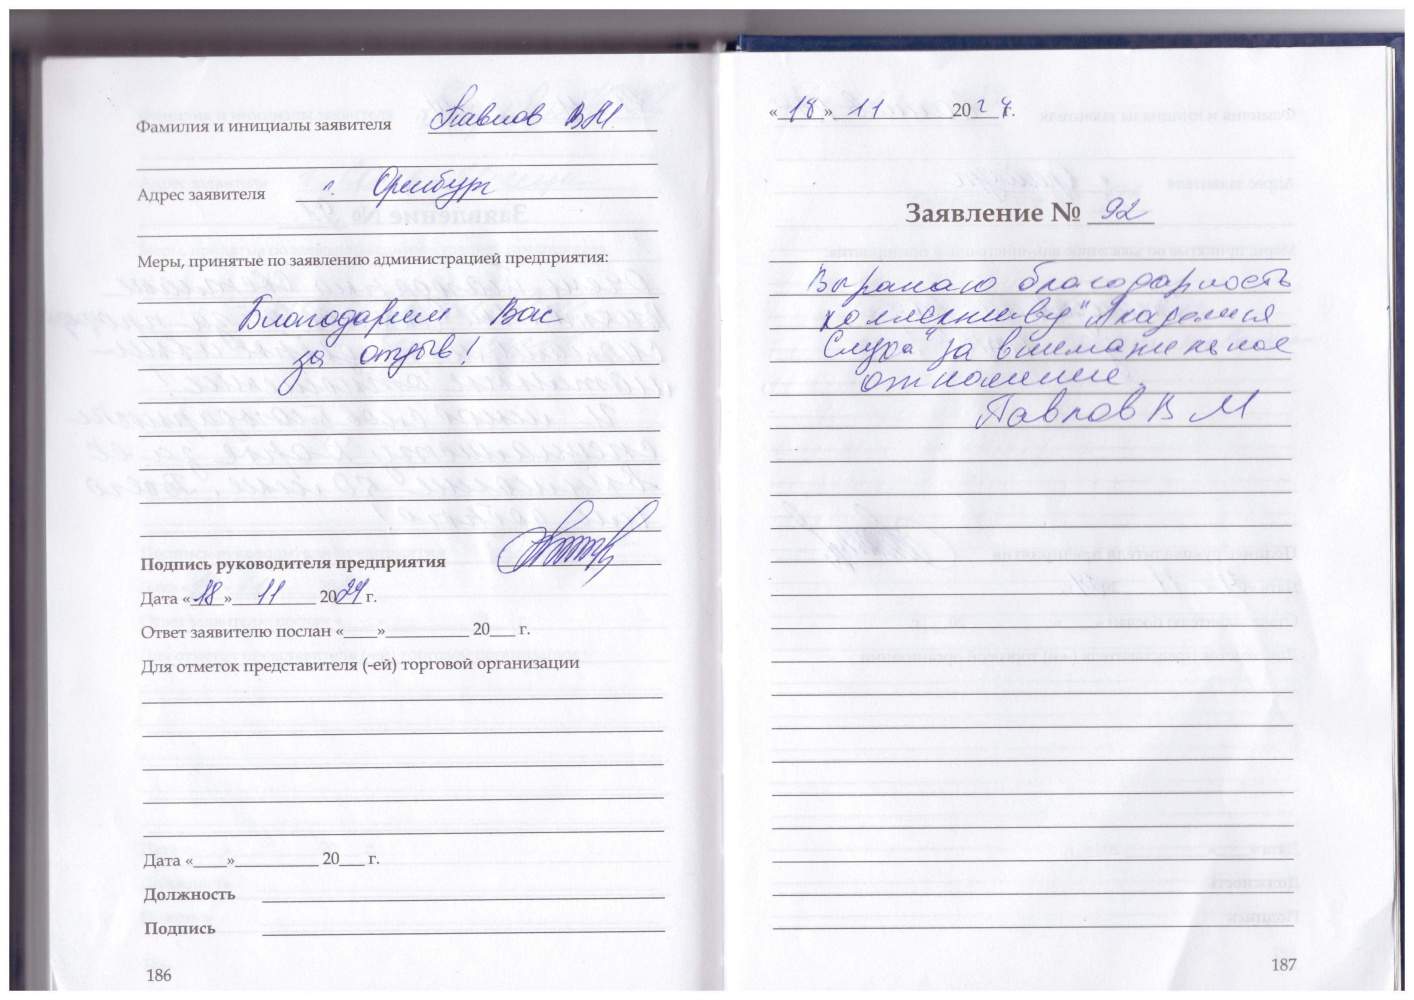 Фамилия и инициалы заявителя Павлов В.М.
Адрес заявителя г. Оренбург
Меры, принятые по заявлению администрацией предприятия:
Благодарим Вас
за отзыв!
Подпись руководителя предприятия
Дата «18» 11 2024 г.
Ответ заявителю послан «____»__________ 20___ г.
Для отметок представителя (-ей) торговой организации
Дата «____»__________ 20___ г.
Должность
Подпись
186
«18» 11 2024г.
Заявление № 92
Выражаю благодарность
коллективу "Академия
Слуха" за внимательное
отношение.
Павлов В М
187